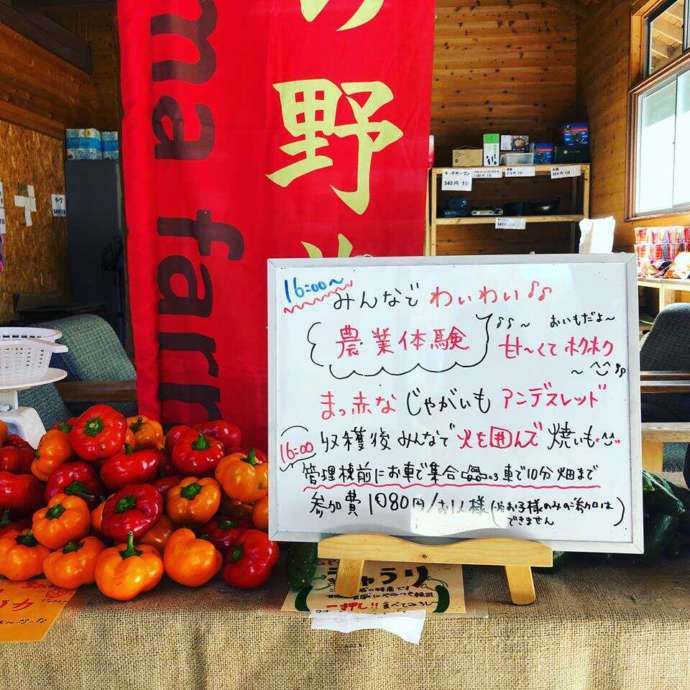 ma farm
の野菜
16:00〜
みんなでわいわい♪♪
農業体験
♪♪〜 おいもだよ〜
甘〜くてホクホク〜
まっ赤なじゃがいもアンデスレッド
16:00
収穫後みんなで火を囲んで焼いも
管理棟前にお車で集合 車で10分畑まで
参加費1080円/お1人様(お子様のみの参加はできません)
きゅうり
一押し!!